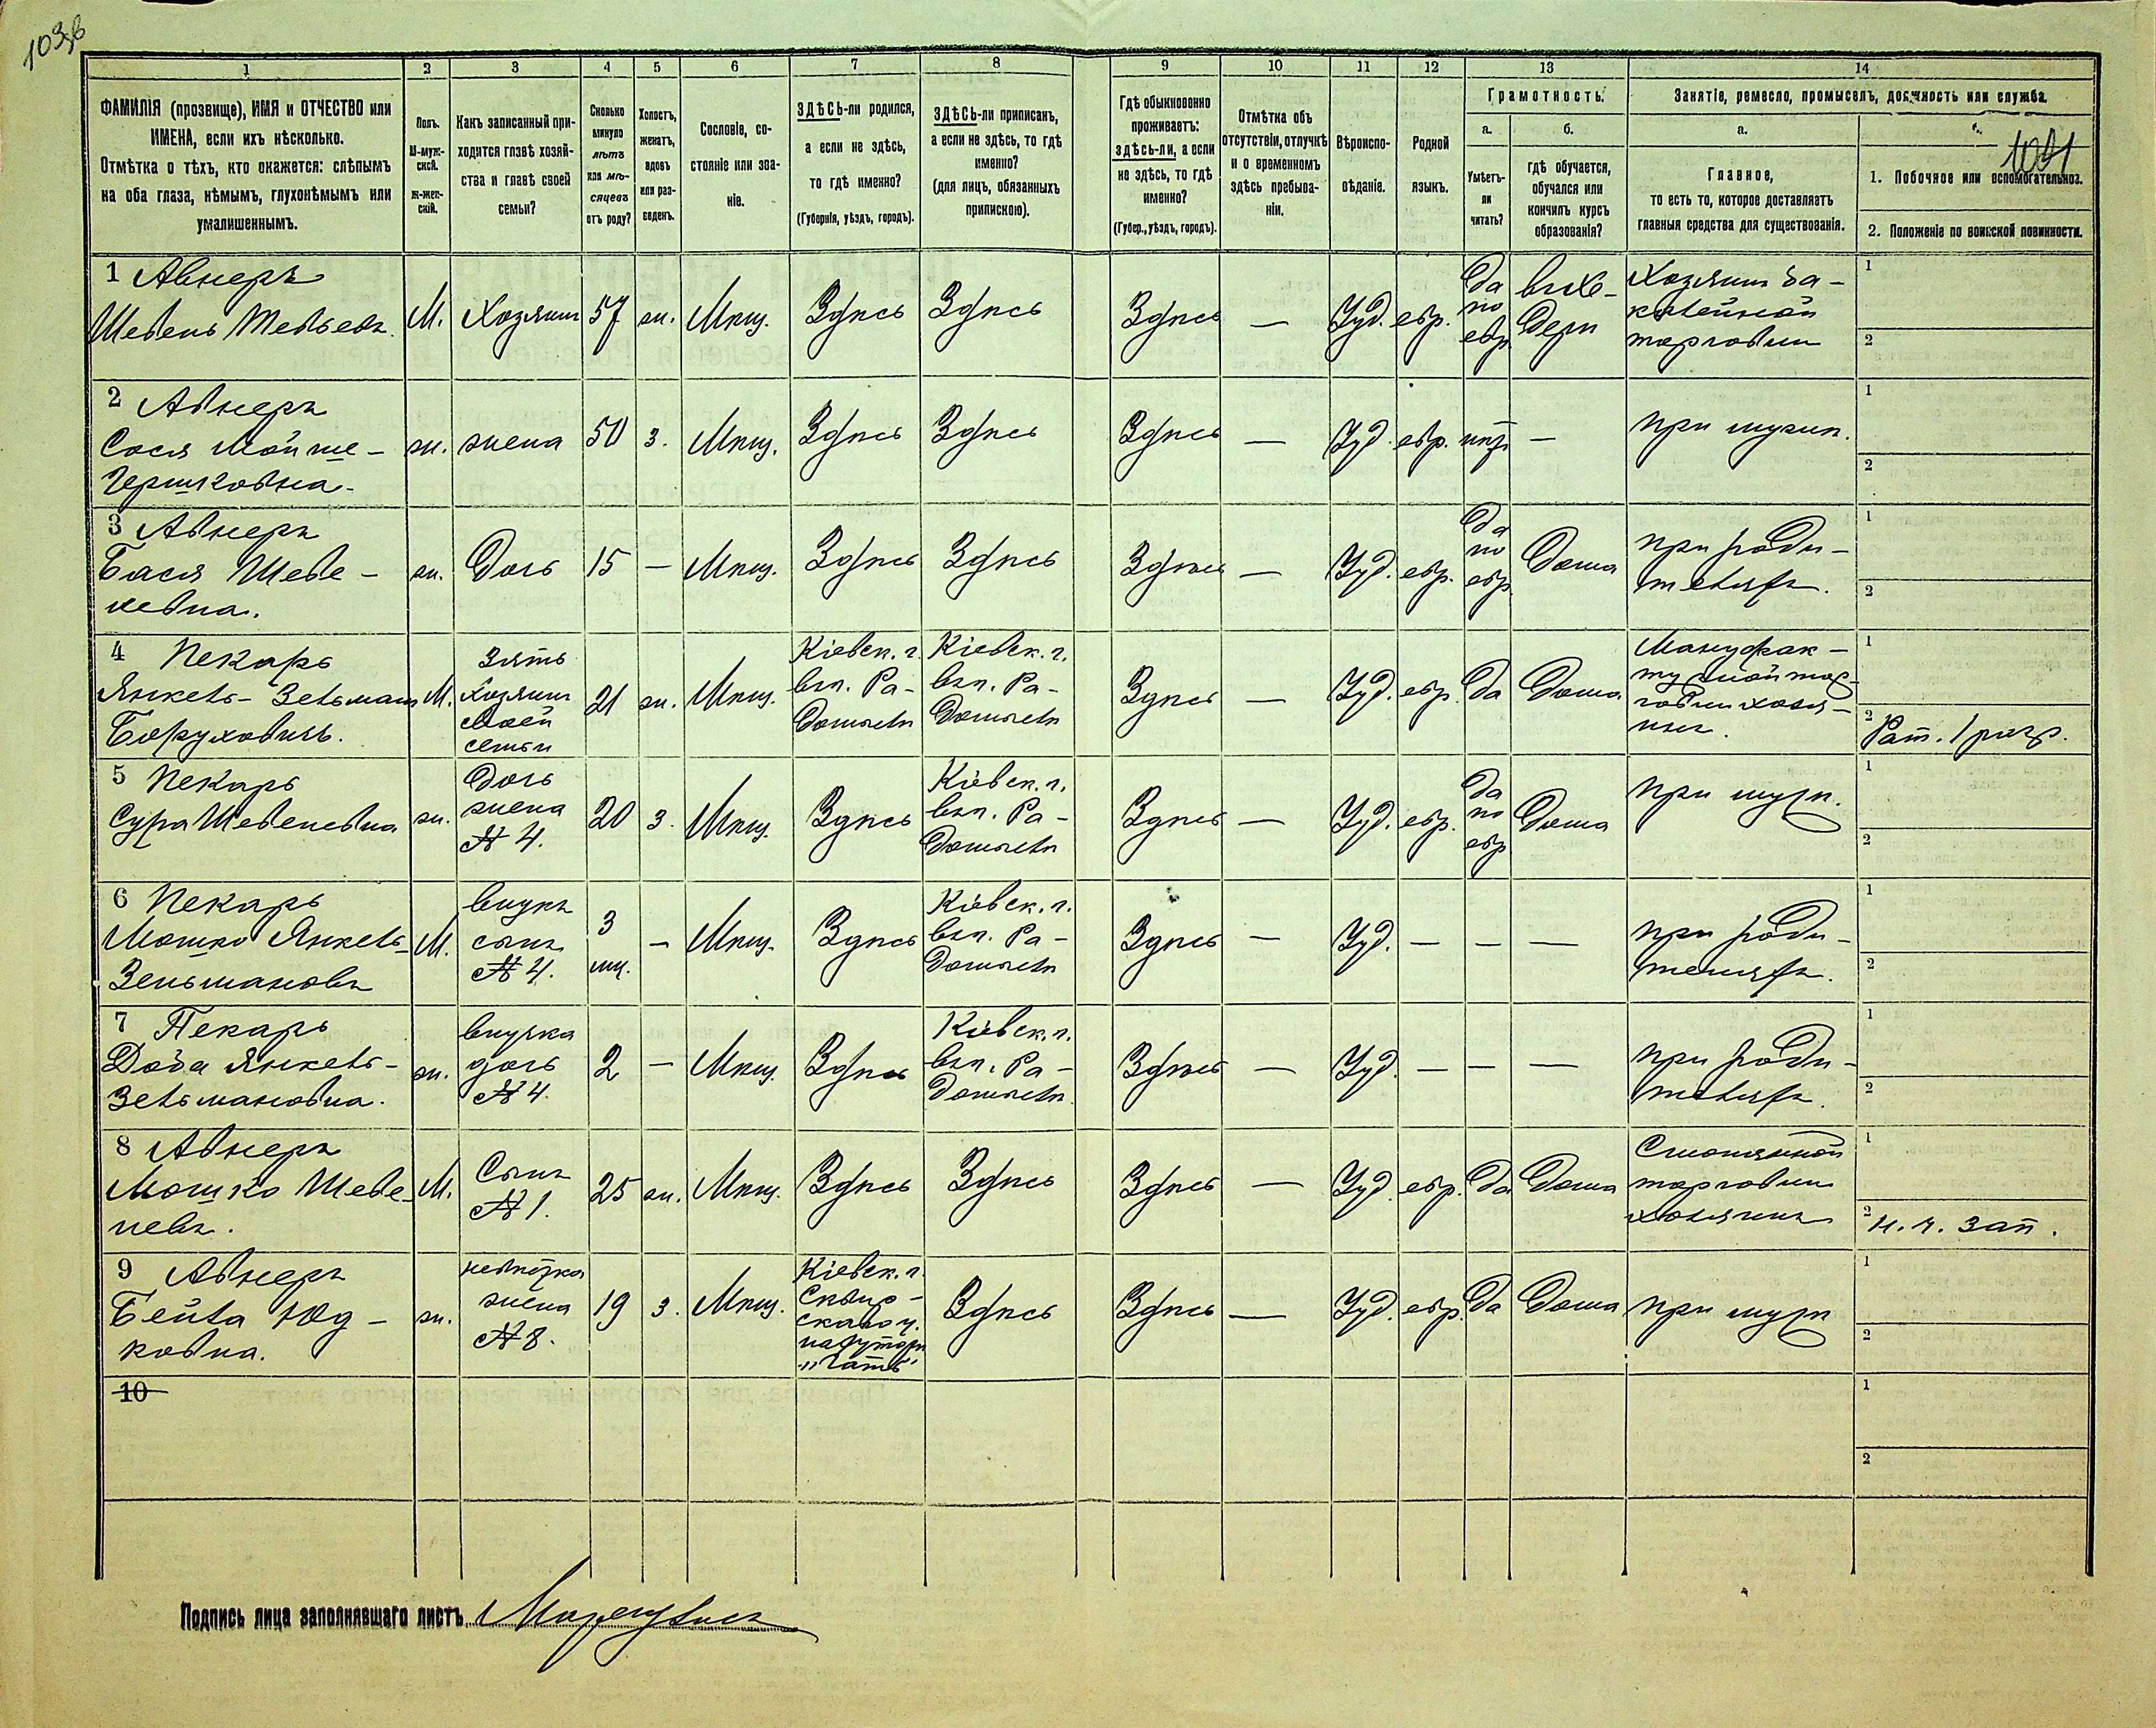 1036
1 2 3 4 5 6 7 8 9 10 11 12 13 14
ФАМИЛІЯ (прозвище), ИМЯ и ОТЧЕСТВО или
ИМЕНА, если ихъ нѣсколько.
Отмѣтка о тѣхъ, кто окажется: слѣпымъ
на оба глаза, нѣмымъ, глухонѣмымъ или
умалишеннымъ.
Полъ.
М-муж-
ской.
ж-жен-
скій.
Какъ записанный при-
ходится главѣ хозяй-
ства и главѣ своей
семьи?
Сколько
минуло
лѣтъ
или мѣ-
сяцевъ
отъ роду?
Холостъ,
женатъ,
вдовъ
или раз-
веденъ.
Сословіе, со-
стояніе или зва-
ніе.
ЗДѢСЬ-ли родился,
а если не здѣсь,
то гдѣ именно?
(Губернія, уѣздъ, городъ).
ЗДѢСЬ-ли приписанъ,
а если не здѣсь, то гдѣ
именно?
(для лицъ, обязанныхъ
припискою).
Гдѣ обыкновенно
проживаетъ:
здѣсь-ли, а если
не здѣсь, то гдѣ
именно?
(Губер., уѣздъ, городъ).
Отмѣтка объ
отсутствіи, отлучкѣ
и о временномъ
здѣсь пребыва-
ніи.
Вѣроиспо-
вѣданіе.
Родной
языкъ.
Грамотность.
а.
Умѣетъ-
ли
читать?
б.
гдѣ обучается,
обучался или
кончилъ курсъ
образованія?
Занятіе, ремесло, промыселъ, должность или служба.
а.
Главное,
то есть то, которое доставляетъ
главныя средства для существованія.
1. Побочное или вспомогательное.
2. Положеніе по воинской повинности.
1 Авнеръ
Шевель
М. Хозяинъ 57 ж. Мѣщ. Здѣсь Здѣсь Здѣсь — Іуд. евр.
да
по
евр.
Хозяинъ ба-
калейной
торговли
1
2
2 Авнеръ
Сося Мойше-
Гершковна
ж. жена 50 з. Мѣщ. Здѣсь Здѣсь Здѣсь — Іуд. евр. нѣтъ —
при мужѣ.
1
2
3 Авнеръ
Бася Шеве-
левна.
ж. Дочь 15 — Мѣщ. Здѣсь Здѣсь Здѣсь — Іуд. евр.
да
по
евр.
Дома
при роди-
теляхъ.
1
2
4 Пекарь
Янкель-Зельманъ
Боруховичъ.
М.
Зять
Хозяинъ
своей
семьи
21 ж. Мѣщ.
Кіевск. г.
Ра-
домыслѣ
Кіевск. г.
Ра-
домыслѣ
Здѣсь — Іуд. евр. да Дома
Мануфак-
турной тор-
говли хозя-
инъ.
1
2 Рат. 1 разр.
5 Пекарь
Сура Шевелевна
ж.
Дочь
жена
№ 4.
20 з. Мѣщ. Здѣсь
Кіевск. г.
Ра-
домыслѣ
Здѣсь — Іуд. евр.
да
по
евр
Дома
при мужѣ.
1
2
6 Пекарь
Мошко Янкель-
Зельмановъ
М.
внукъ
сынъ
№ 4.
3
мц.
— Мѣщ. Здѣсь
Кіевск. г.
Ра-
домыслѣ
Здѣсь — Іуд. — — —
при роди-
теляхъ.
1
2
7 Пекарь
Янкель-
Зельмановна.
ж.
внучка
дочь
№ 4.
2 — Мѣщ. Здѣсь
Кіевск. г.
Ра-
домыслѣ
Здѣсь — Іуд. — — —
при роди-
теляхъ.
1
2
8 Авнеръ
Мошко Шеве-
левъ.
М.
Сынъ
№ 1.
25 ж. Мѣщ. Здѣсь Здѣсь Здѣсь — Іуд. евр. да Дома
торговли
хозяинъ
1
2 н. ч. зап.
9 Авнеръ
Бейла Юд-
ковна.
ж.
невѣстка
жена
№ 8.
19 з. Мѣщ.
Кіевск. г.
Сквир-
скаго у.
на хуторѣ
"Гать"
Здѣсь Здѣсь — Іуд. евр. да Дома при мужѣ
1
2
10
1
2
Подпись лица заполнявшаго листъ